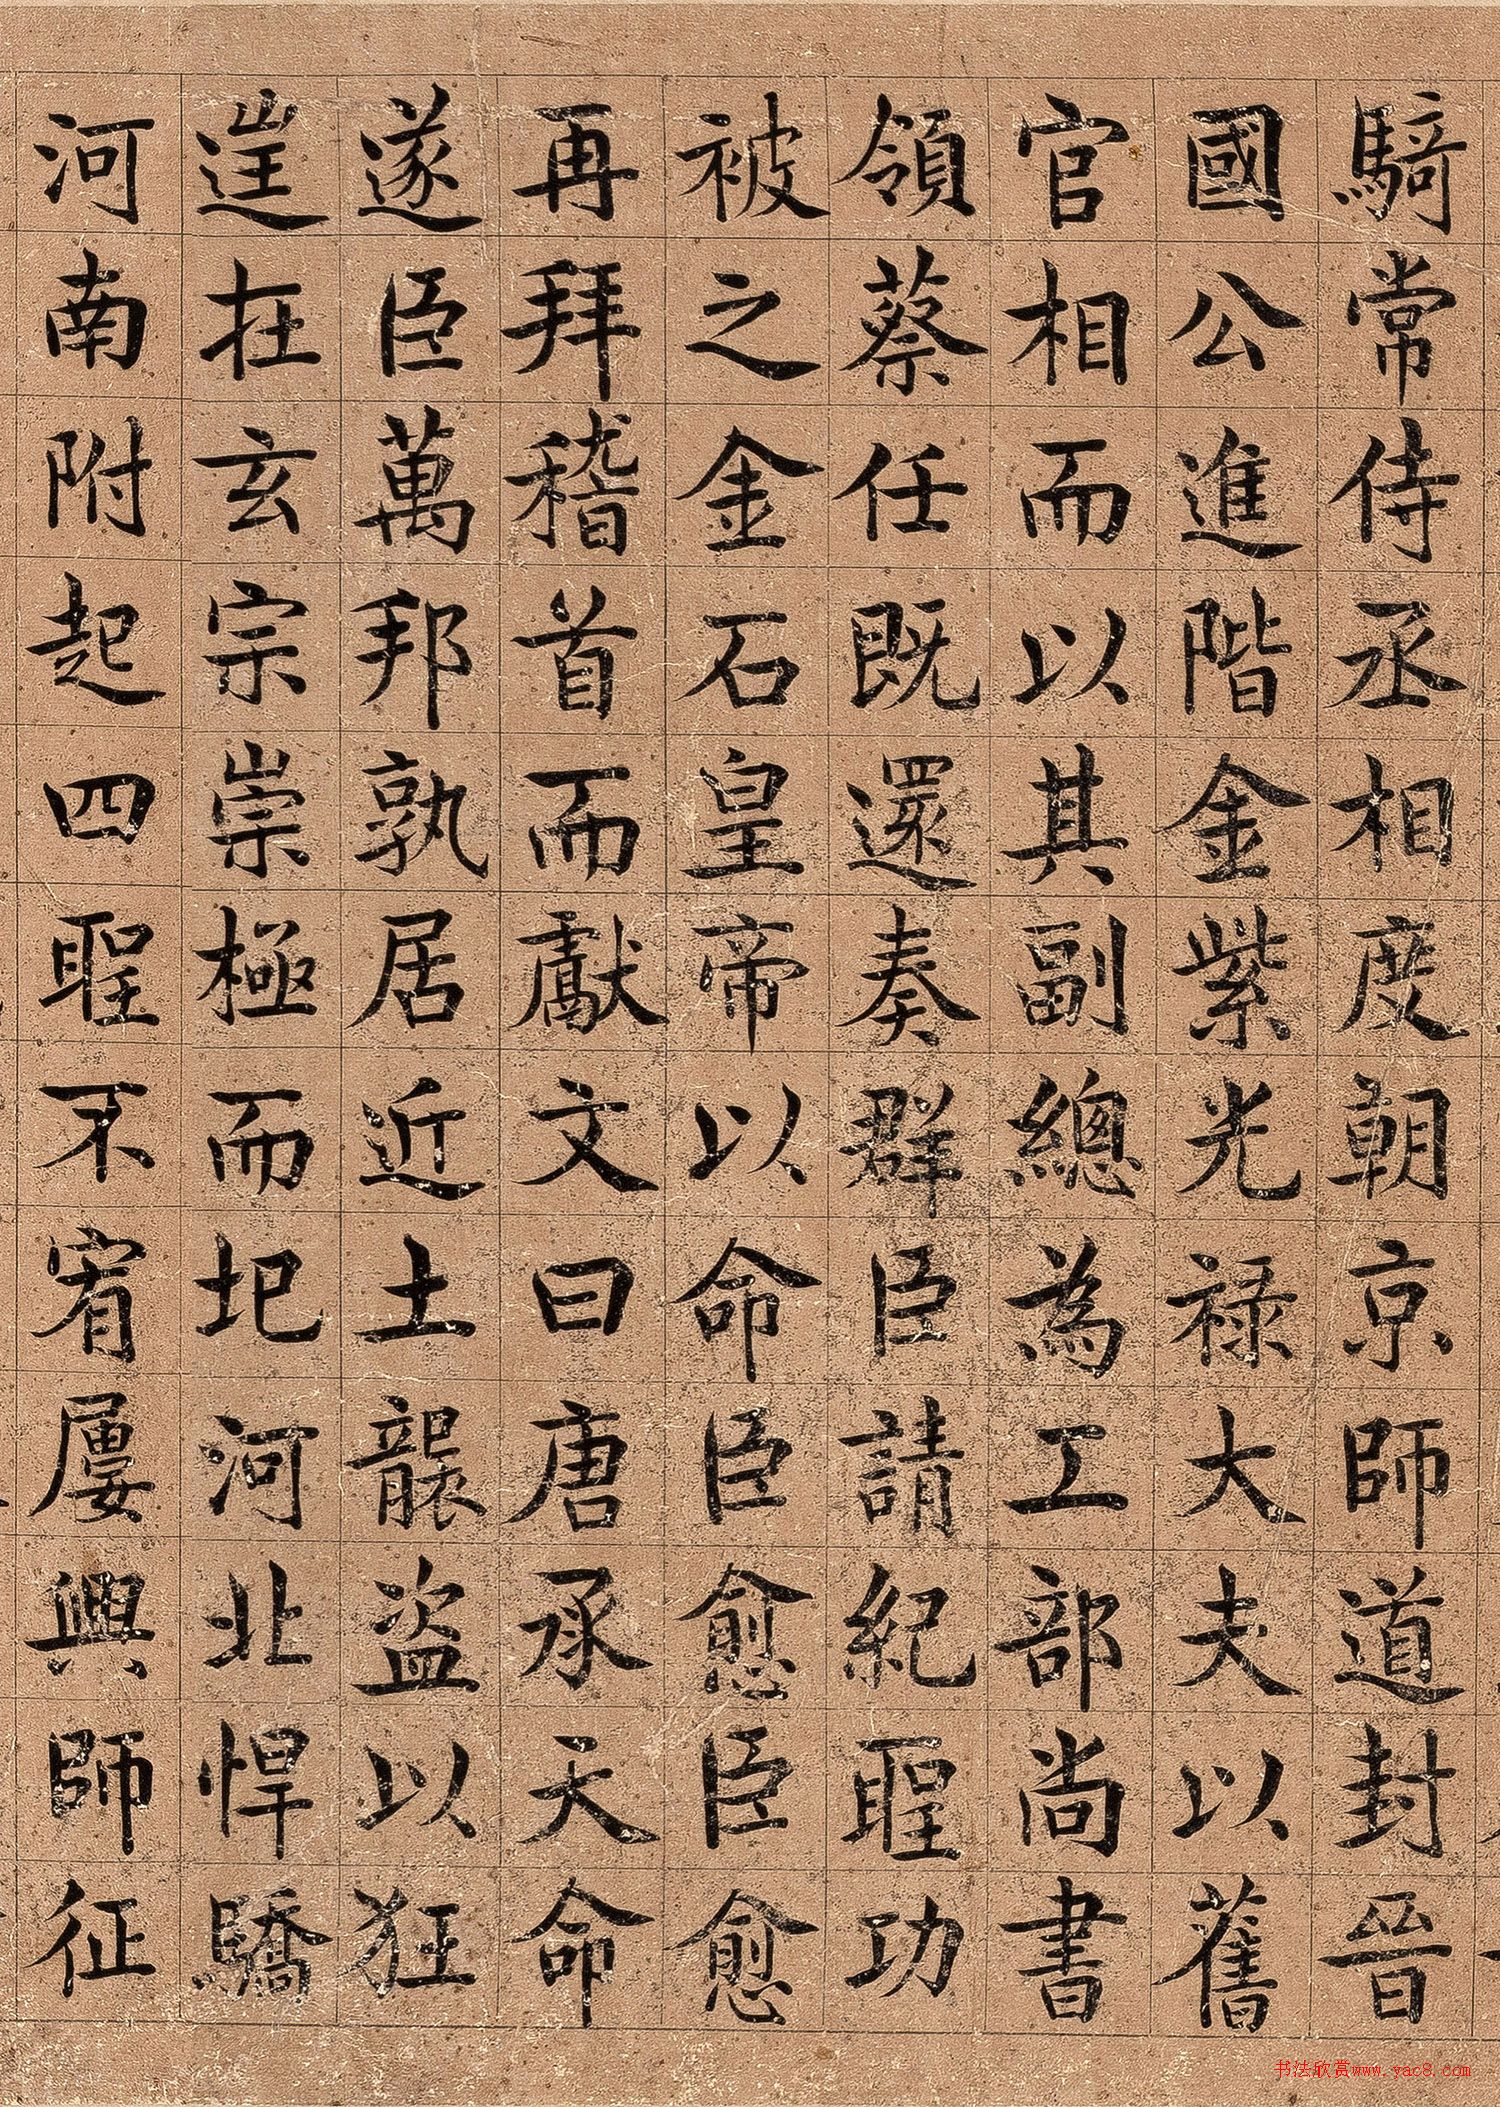 騎常侍丞相度朝京師道封晉
國公進階金紫光祿大夫以舊
官相而以其副總為工部尚書
領蔡任既還奏群臣請紀聖功
被之金石皇帝以命臣愈臣愈
再拜稽首而獻文曰唐承天命
遂臣萬邦孰居近土襲盜以狂
逞在玄宗崇極而圮河北悍驕
河南附起四聖不宥屢興師征
书法欣赏www.yac8.com